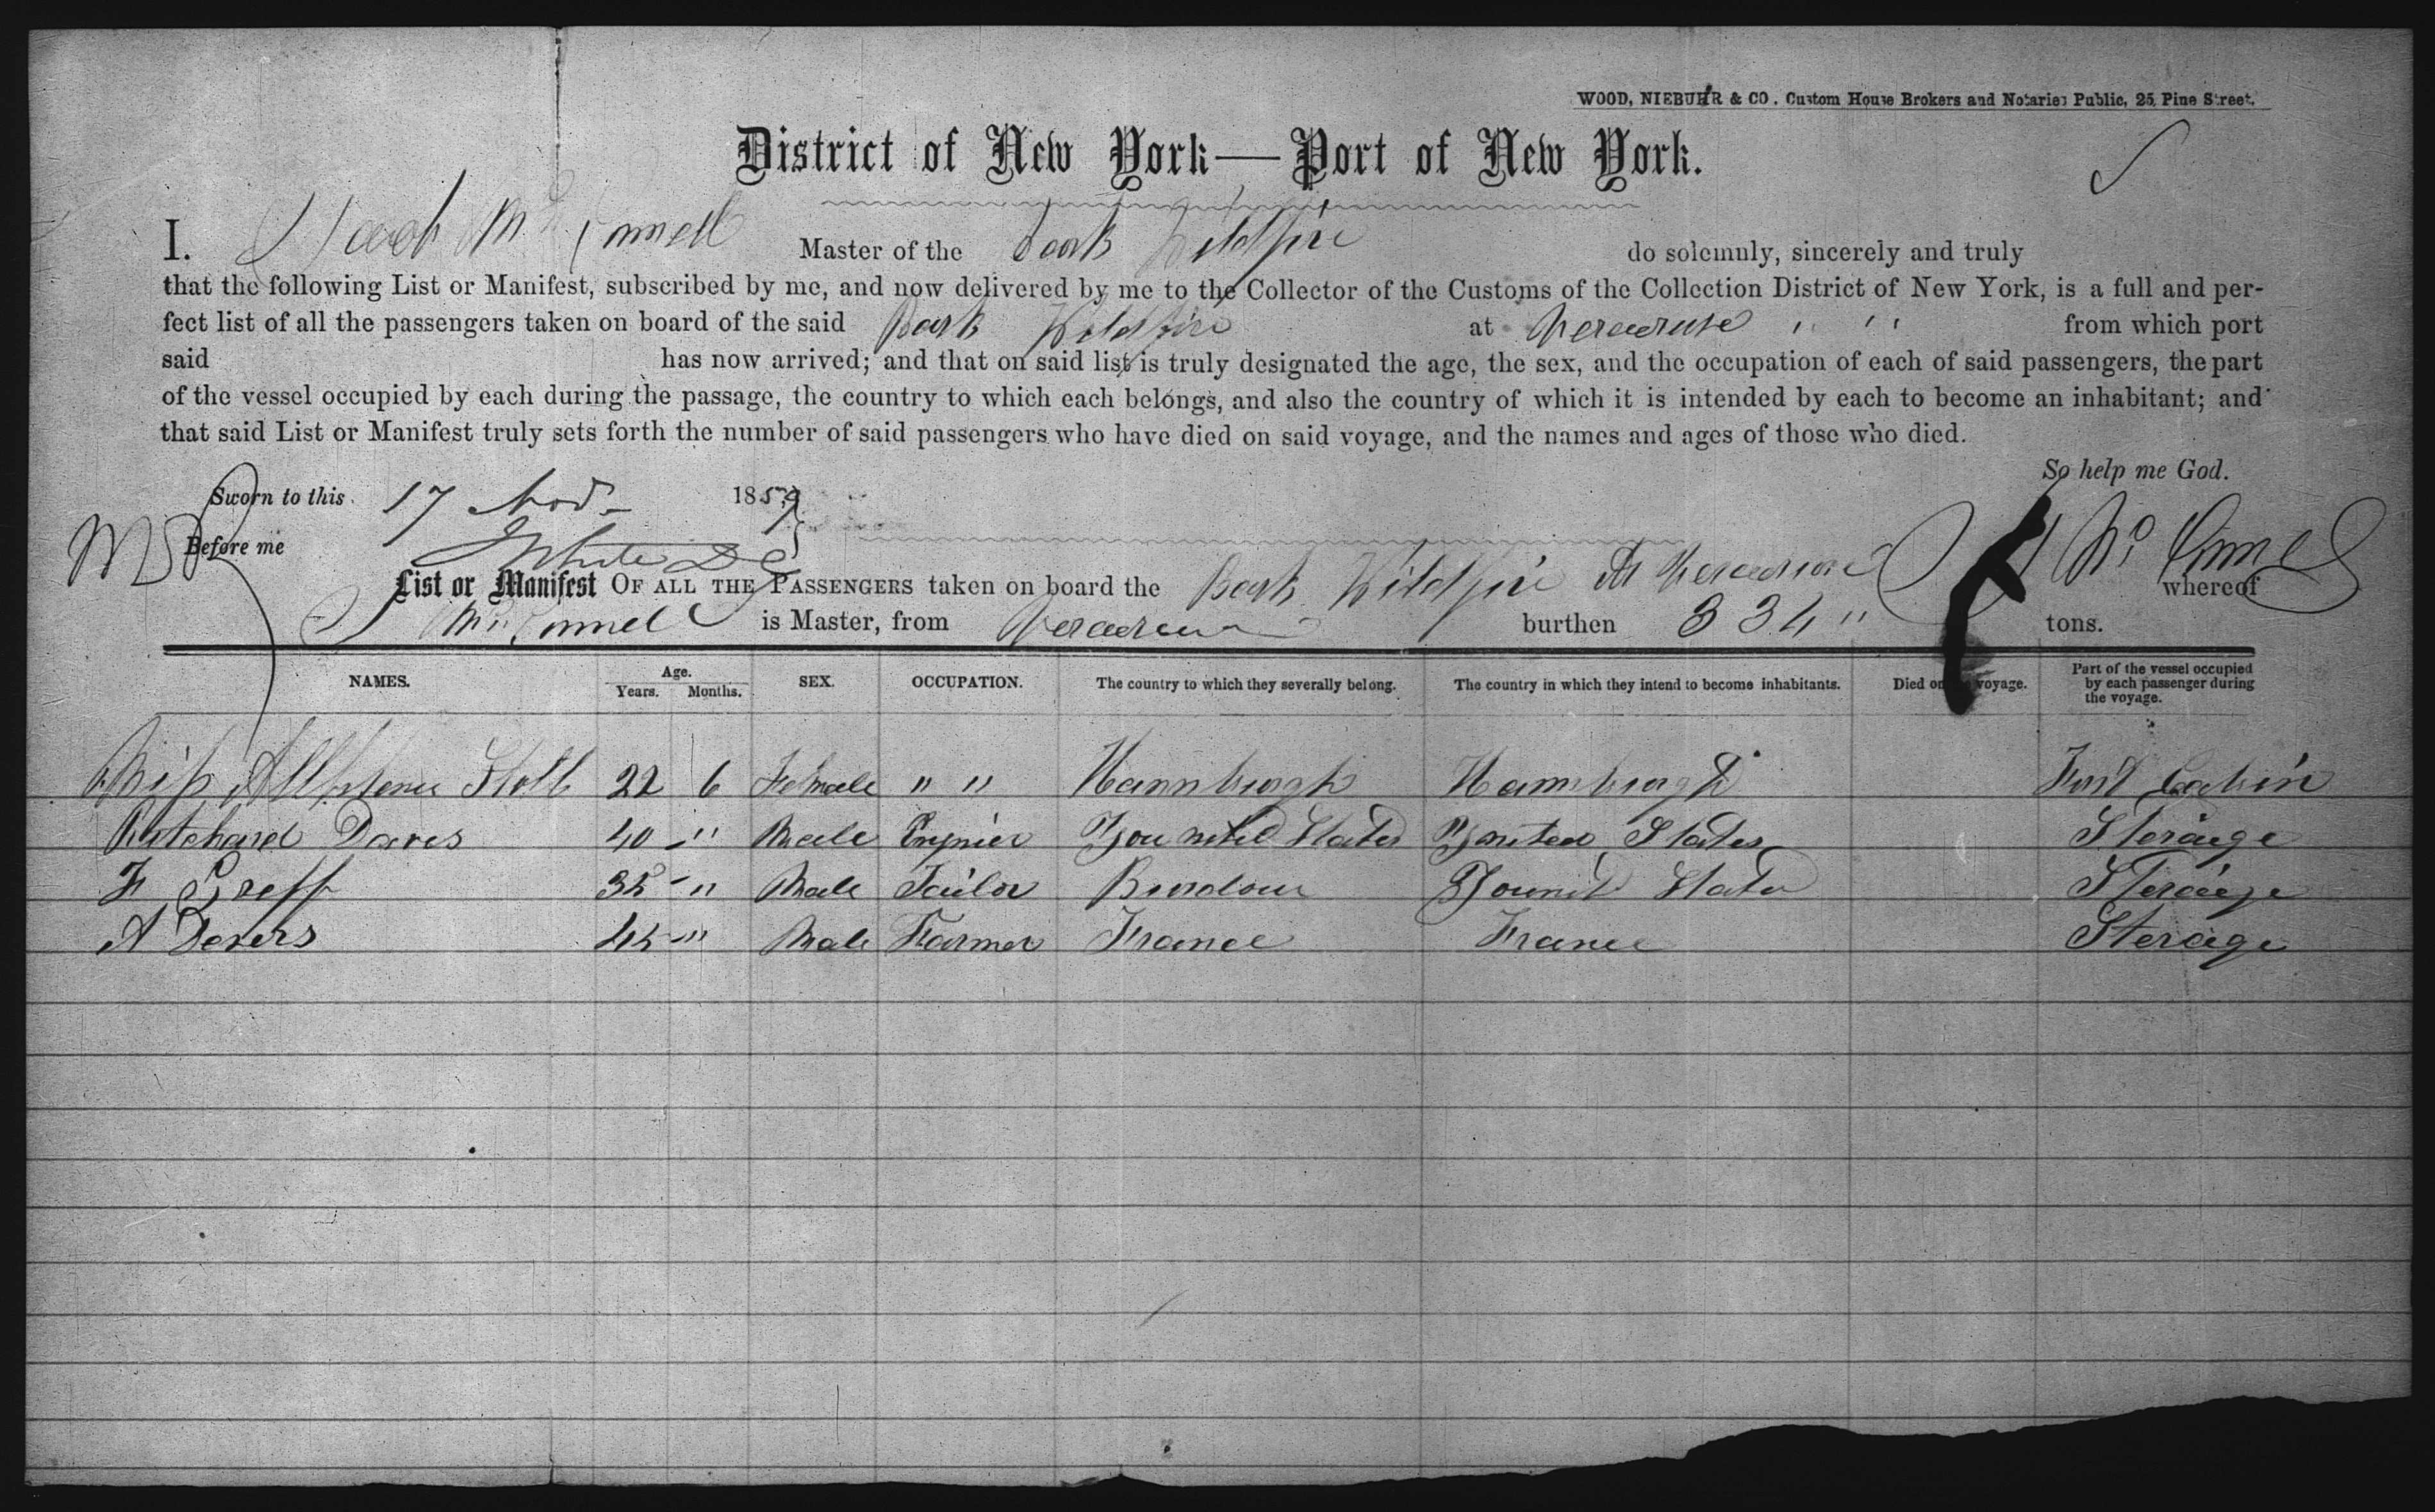 WOOD, NIEBUHR & CO. Custom House Brokers and Notaries Public, 25, Pine Street.
District of New York—Port of New York.
I. Jacob Mc Connell Master of the Bark Wildfire do solemnly, sincerely and truly
that the following List or Manifest, subscribed by me, and now delivered by me to the Collector of the Customs of the Collection District of New York, is a full and per-
fect list of all the passengers taken on board of the said Bark Wildfire at Veracruse " " from which port
said has now arrived; and that on said list is truly designated the age, the sex, and the occupation of each of said passengers, the part
of the vessel occupied by each during the passage, the country to which each belongs, and also the country of which it is intended by each to become an inhabitant; and
that said List or Manifest truly sets forth the number of said passengers who have died on said voyage, and the names and ages of those who died.
So help me God.
Sworn to this 17 Nov. 1859
Before me White J Mc Connel
List or Manifest OF ALL THE PASSENGERS taken on board the Bark Wildfire At whereof
J Mc Connel is Master, from burthen 334 " tons.
NAMES. Age. Years. Months. SEX. OCCUPATION. The country to which they severally belong. The country in which they intend to become inhabitants. Died on voyage. Part of the vessel occupied by each passenger during the voyage.
Miss 22 6 Female " " Hannburgh Hamburgh Cabin
Davis 40 - " Male You nited States States Sterage
F Greff 35 - " Male Tailor States Sterage
A Devers 45 - " Male Farmer France France Sterage